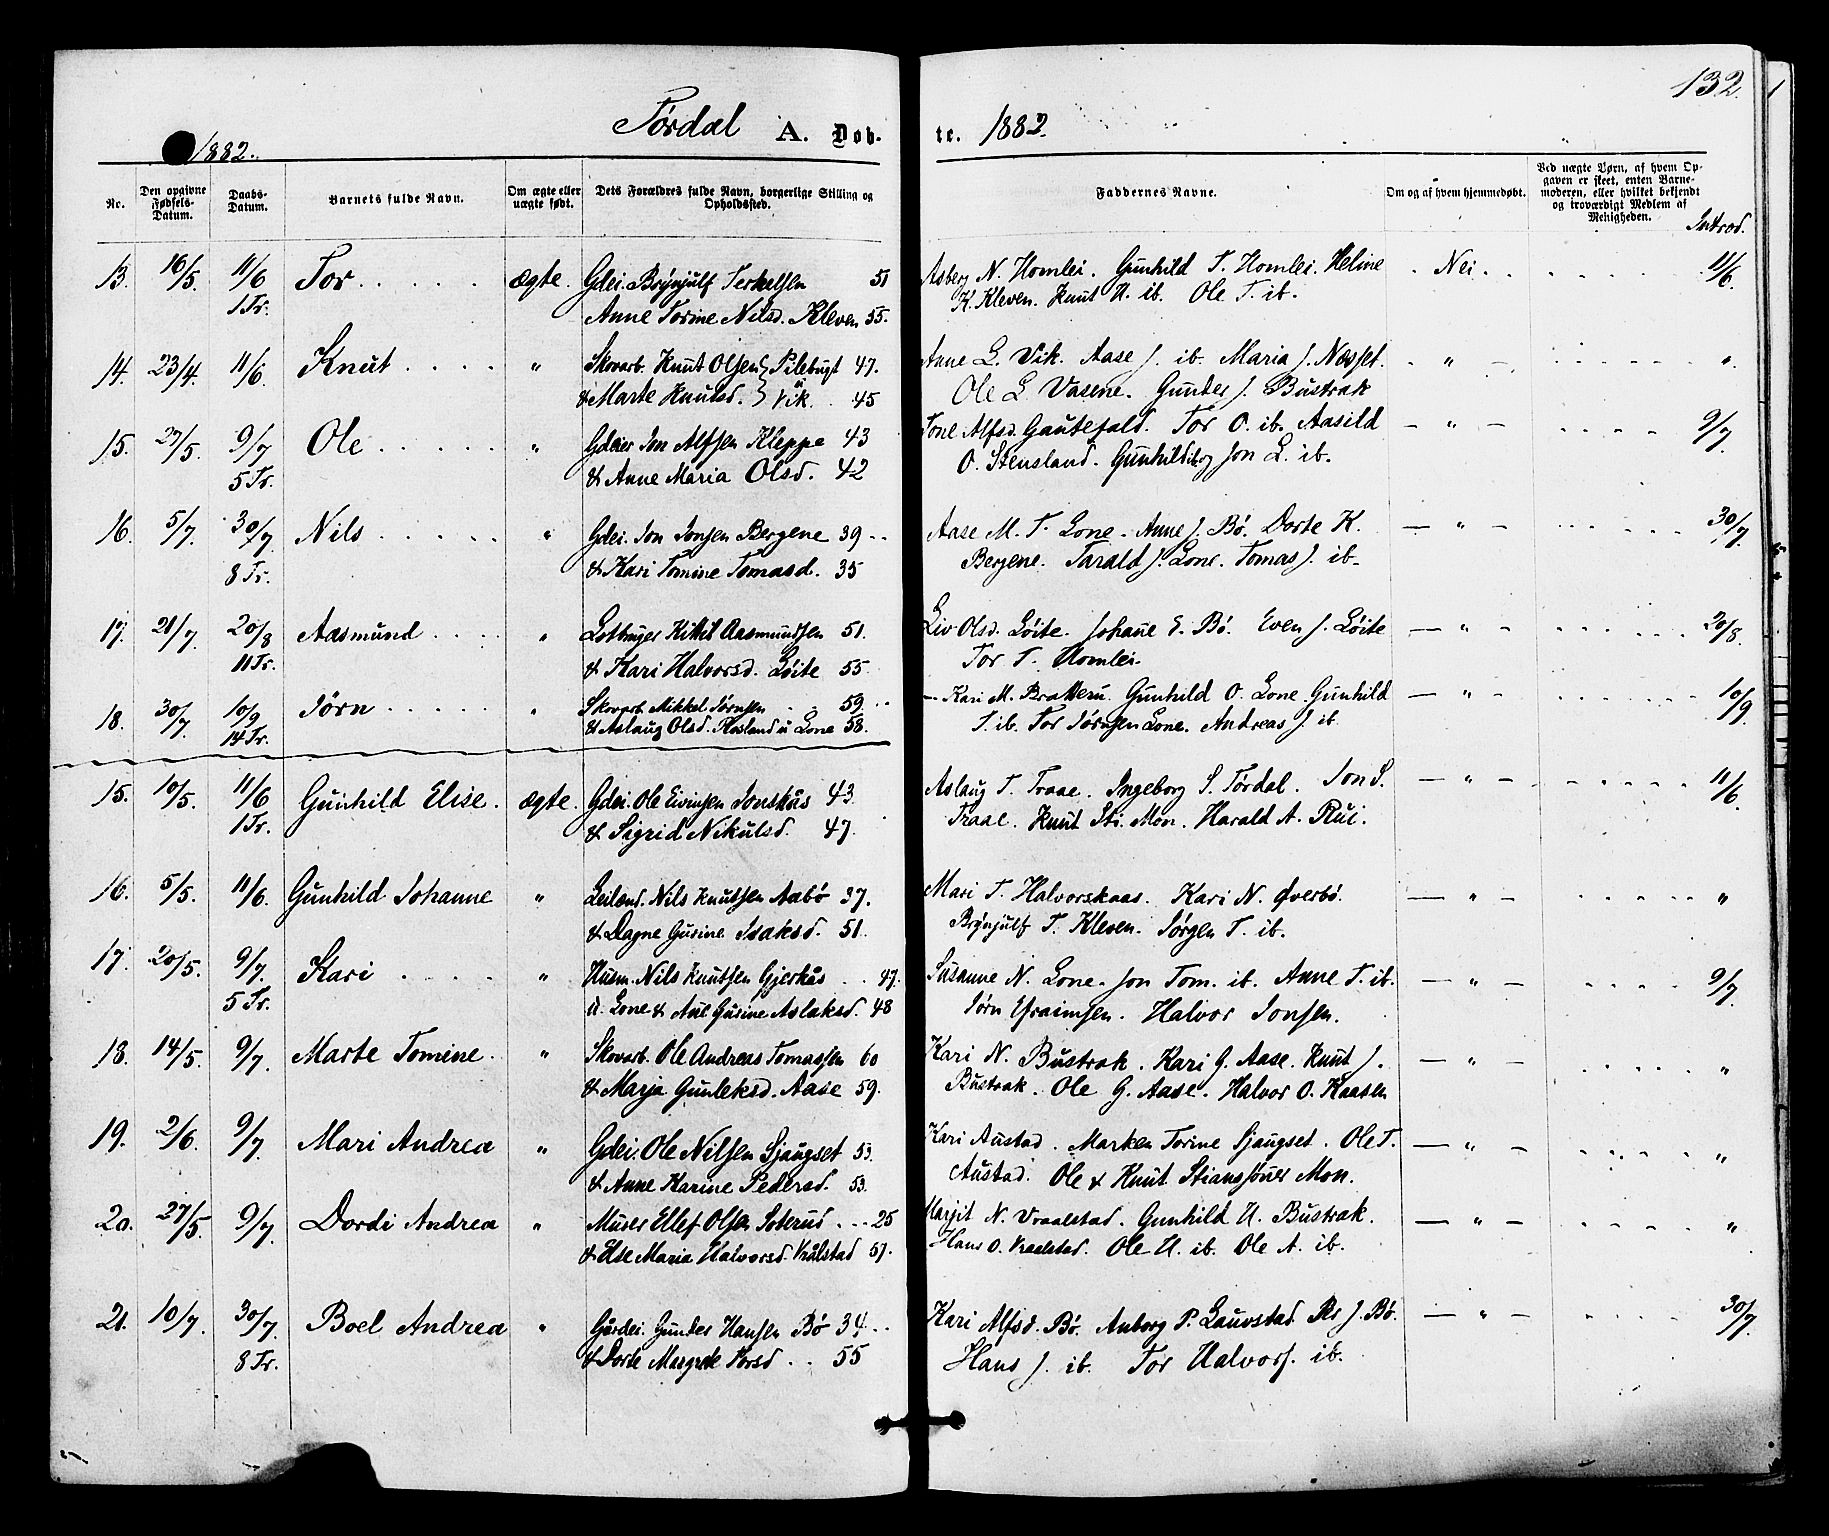 132.
Tørdal A. Døb- te. 1882.
1882.
Nr. Den opgivne Fødsels-Datum. Daabs-Datum. Barnets fulde Navn. Om ægte eller uægte født. Dets Forældres fulde Navn, borgerlige Stilling og Opholdssted. Faddernes Navne. Om og af hvem hjemmedøbt. Ved uægte Børn, af hvem Opgaven er skeet, enten Barnemoderen, eller hvilket bekjendt og troværdigt Medlem af Menigheden. Introd.
13. 16/5. 11/6 Tor ægte. Gdei. Brynjulf Terkelsen 51 Asberg N. Homlei. Gunhild T. Homlei. Heline Nei. 11/6.
1 Tr. Anne Torine Nilsd. Kleven 55. K. Kleven. Knut U. ib. Ole T. ib.
14. 23/4. 11/6. Knut " Skovarb. Knut Olsen Pilebugt 47. Anne L. Vik. Aase J. ib. Maria J. Næsset. " "
& Marte Knutsd. u Vik 45 Ole L. Vasene. Gunder J. Bustrak
15. 27/5. 9/7 Ole " Gdeier Jon Alfsen Kleppe 43 Tone Alfsd. Gautefald. Tor O. ib. Aasild " 9/7
5 Tr. & Anne Maria Olsd. 42 O. Stensland. Gunhild Jon L. ib.
16. 5/7. 30/7 Nils " Gdei. Jon Jonsen Bergene 39 Aase M. T. Lone. Anne J. Bø. Dorte K. " 30/7
8 Tr. & Kari Tomine Tomasd. 35 Bergene. Tarald J. Lone. Tomas J. ib.
17. 21/7 20/8 Aasmund " Kittil Aasmundsen 51. Liv Olsd. Løite. Johane E. Bø. Even J. Løite " 20/8.
11 Tr. & Kari Halvorsd. Løite 55 Tor T. Homlei.
18. 30/7 10/9 Jørn " Skovarb. Mikkel Jørnsen 59 Kari M. Bratteru. Gunhild O. Lone. Gunhild " 10/9
14 Tr. & Aslaug Olsd. Røsland u Lone 58. T. ib. Tor Jørnsen Lone. Andreas J. ib.
15. 10/5. 11/6 Gunhild Elise. ægte. Gdei. Ole Eivinsen Jonskås 43 Aslaug T. Traae. Ingeborg S. Tørdal. Jon S. " 11/6.
1 Tr. & Sigrid Nikulsd. 47. Traae. Knut Sti. Mon. Harald A. Rui.
16. 5/5. 11/6. Gunhild Johanne " Leilænd. Nils Knutsen Aabø 37. Mari T. Halvorskaas. Kari N. Øverbø. " "
& Dagne Gurine Isaksd. 51. Brynjulf T. Kleven. Jørgen T. ib.
17. 20/5. 9/7. Kari " Husm. Nils Knutsen Gjerkås 47. Susanne N. Lone. Jon Tom. ib. Anne T. ib. " 9/7.
5 Tr. u. Lone & Ane Gurine Aslaksd. 48 Jørn Efraimsen. Halvor Jonsen.
18. 14/5. 9/7. Marte Tomine. " Skovarb. Ole Andreas Tomassen 60 Kari N. Bustrak. Kari G. Aase. Knut J. " "
& Marja Gunleksd. Aase 59. Bustrak. Ole G. Aase. Halvor O. Kaasen
19. 2/6. 9/7. Mari Andrea " Gdei. Ole Nilsen Sjaugset 53. Kari Austad. Marken Torine Sjaugset. Ole T. " "
& Anne Karine Pedersd. 53. Austad. Ole & Knut Stianssøner Mon.
20. 27/5. 9/7. Dordi Andrea " Murer Ellef Olsen Soterud 25 Marjit N. Vraalstad. Gunhild U. Bustrak. " "
& Else Maria Halvorsd. Vrålstad 57. Hans O. Vraalstad. Ole U. ib. Ole A. ib.
21. 10/7. 30/7. Boel Andrea " Gårdei. Gunder Hansen Bø 34 Kari Alfsd. Bø. Anborg P. Lauvstad. Per J. Bø. " 30/7.
8 Tr. & Dorte Margrete Torsd 55 Hans J. ib. Tor Halvors. ib.